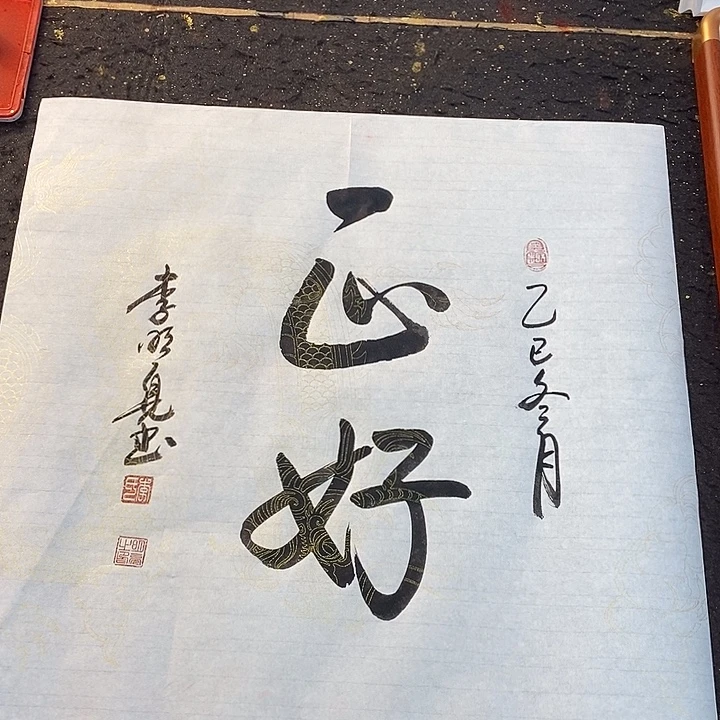 乙巳冬月
正好
李明亮书